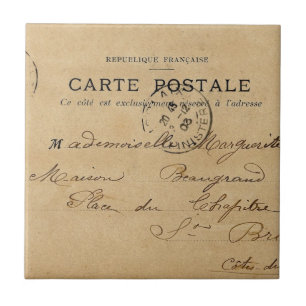 REPUBLIQUE FRANÇAISE
CARTE POSTALE
Ce côté est exclusivement réservé à l'adresse
20 45
2 -12
03
FINISTERE
Mademoiselle Marguerite
Maison Beaugrand
Place du Chapitre
St Bri
Côtes du